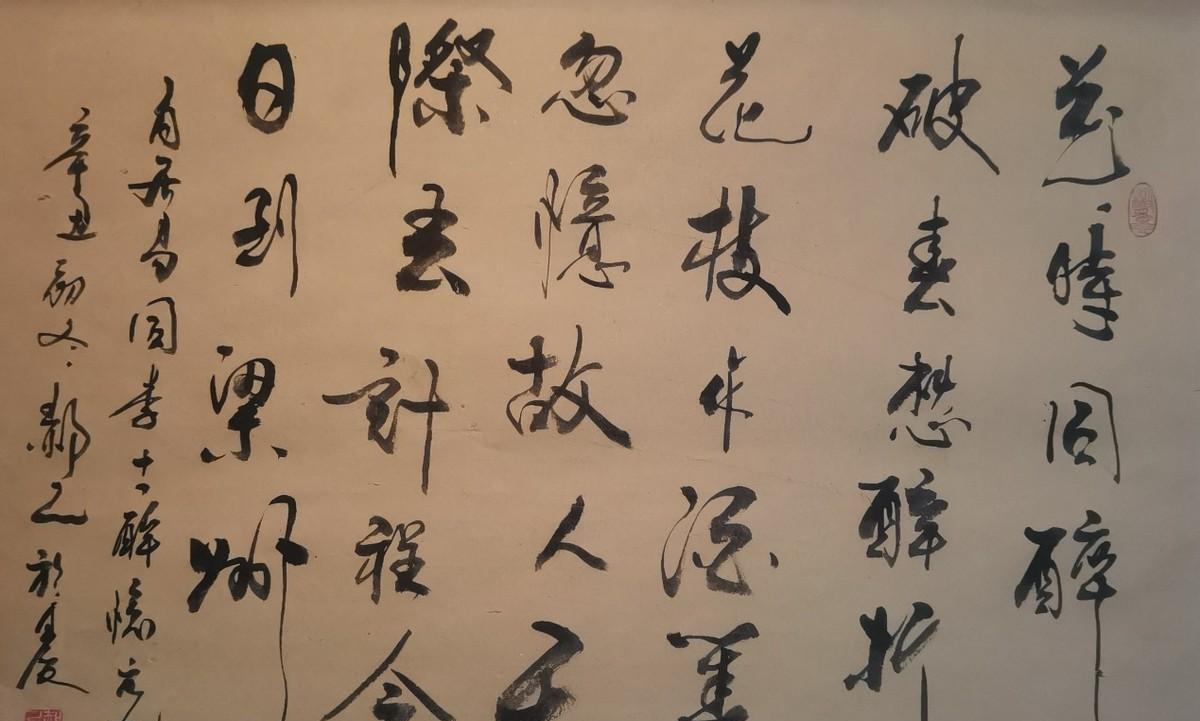 花時同醉
破春愁醉折
花枝作酒籌
忽憶故人天
際去計程今
日到梁州
白居易同李十一醉憶元
辛丑初冬